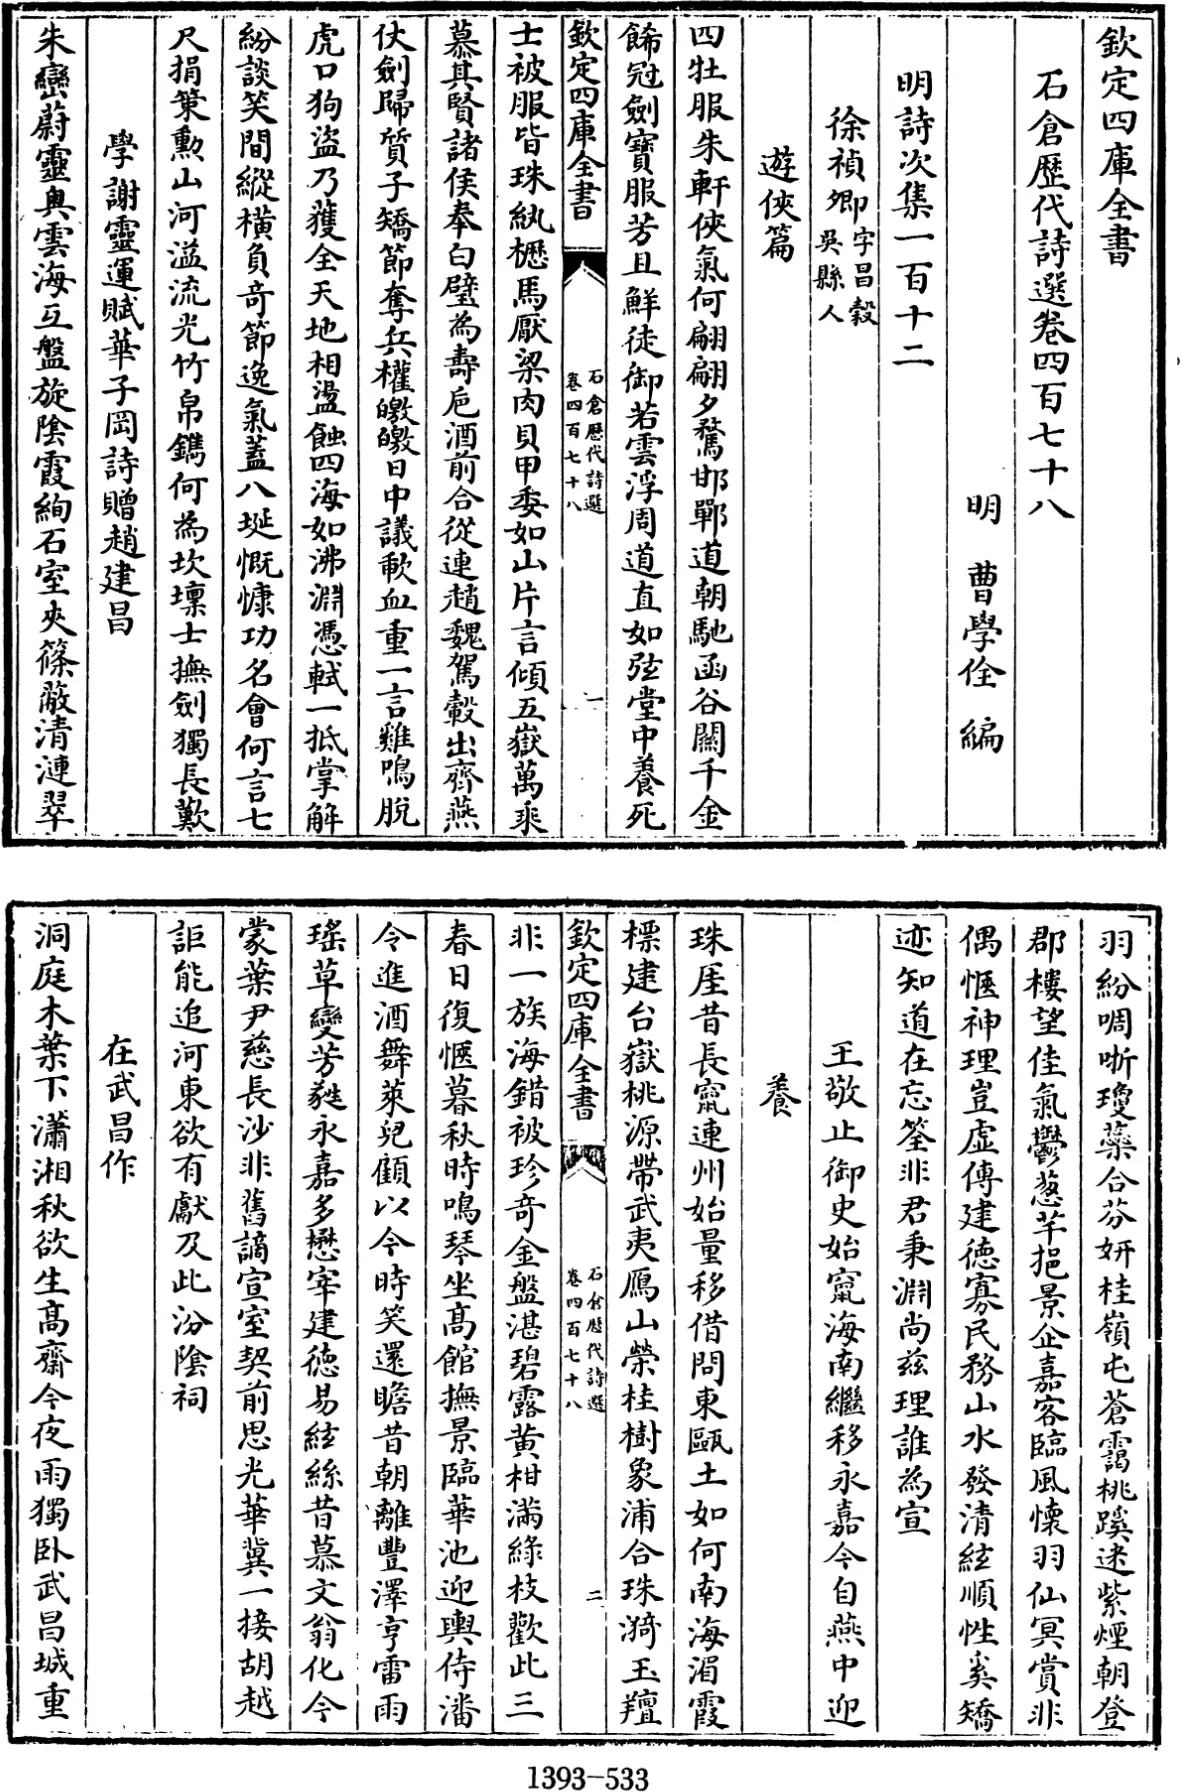 欽定四庫全書
石倉歷代詩選卷四百七十八
明 曹學佺 編
明詩次集一百十二
徐禎卿字昌穀吳縣人
遊俠篇
四牡服朱軒俠氣何翩翩夕騖邯鄲道朝馳函谷關千金
餙冠劍寶服芳且鮮徒御若雲浮周道直如弦堂中養死
欽定四庫全書 石倉歷代詩選卷四百七十八 一
士被服皆珠紈櫪馬厭梁肉貝甲委如山片言傾五嶽萬乘
慕其賢諸侯奉白璧為壽卮酒前合從連趙魏駕轂出齊燕
仗劍歸質子矯節奪兵權皦皦日中議歃血重一言雞鳴脫
虎口狗盜乃獲全天地相盪蝕四海如沸淵憑軾一抵掌解
紛談笑間縱橫負奇節逸氣蓋八埏慨慷功名會何言七
尺捐策勳山河溢流光竹帛鐫何為坎壈士撫劍獨長歎
學謝靈運賦華子岡詩贈趙建昌
朱巒蔚靈輿雲海互盤旋陰霞絢石室夾篠蔽清漣翠
羽紛啁哳瓊蘂合芬妍桂嶺屯蒼靄桃蹊迷紫煙朝登
郡樓望佳氣鬱葱芊挹景企嘉客臨風懷羽仙冥賞非
偶愜神理豈虛傳建德寡民務山水發清絃順性奚矯
迹知道在忘筌非君秉淵尚兹理誰為宣
王敬止御史始竄海南繼移永嘉今自燕中迎
養
珠厓昔長竄連州始量移借問東甌土如何南海湄霞
標建台嶽桃源帶武夷鴈山榮桂樹象浦合珠漪玉羶
欽定四庫全書 石倉歷代詩選卷四百七十八 二
非一族海錯被珍奇金盤湛碧露黄柑滿綠枝歡此三
春日復愜暮秋時鳴琴坐髙館撫景臨華池迎輿侍潘
令進酒舞萊兒顧以今時笑還瞻昔朝離豐澤亨雷雨
瑤草變芳蕤永嘉多懋宰建德易絃絲昔慕文翁化今
蒙葉尹慈長沙非舊謫宣室契前思光華冀一接胡越
詎能追河東欲有獻及此汾陰祠
在武昌作
洞庭木葉下瀟湘秋欲生髙齋今夜雨獨卧武昌城重
1393-533